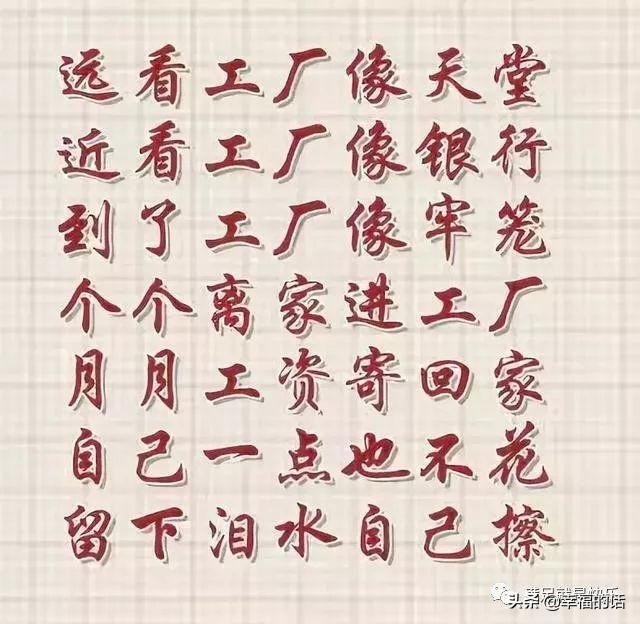 远看工厂像天堂
近看工厂像银行
到了工厂像牢笼
个个离家进工厂
月月工资寄回家
自己一点也不花
留下泪水自己擦
头条@幸福的话